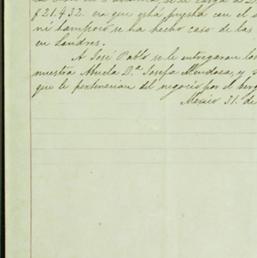 $21.432. era que está puesta con el
ni tampoco se ha hecho caso de las
en Londres.
A José Pablo se le entregaron los
nuestra Abuela D.ª Josefa Mendosa, y
que le pertenecian del negocio por el
Mexico 31. de